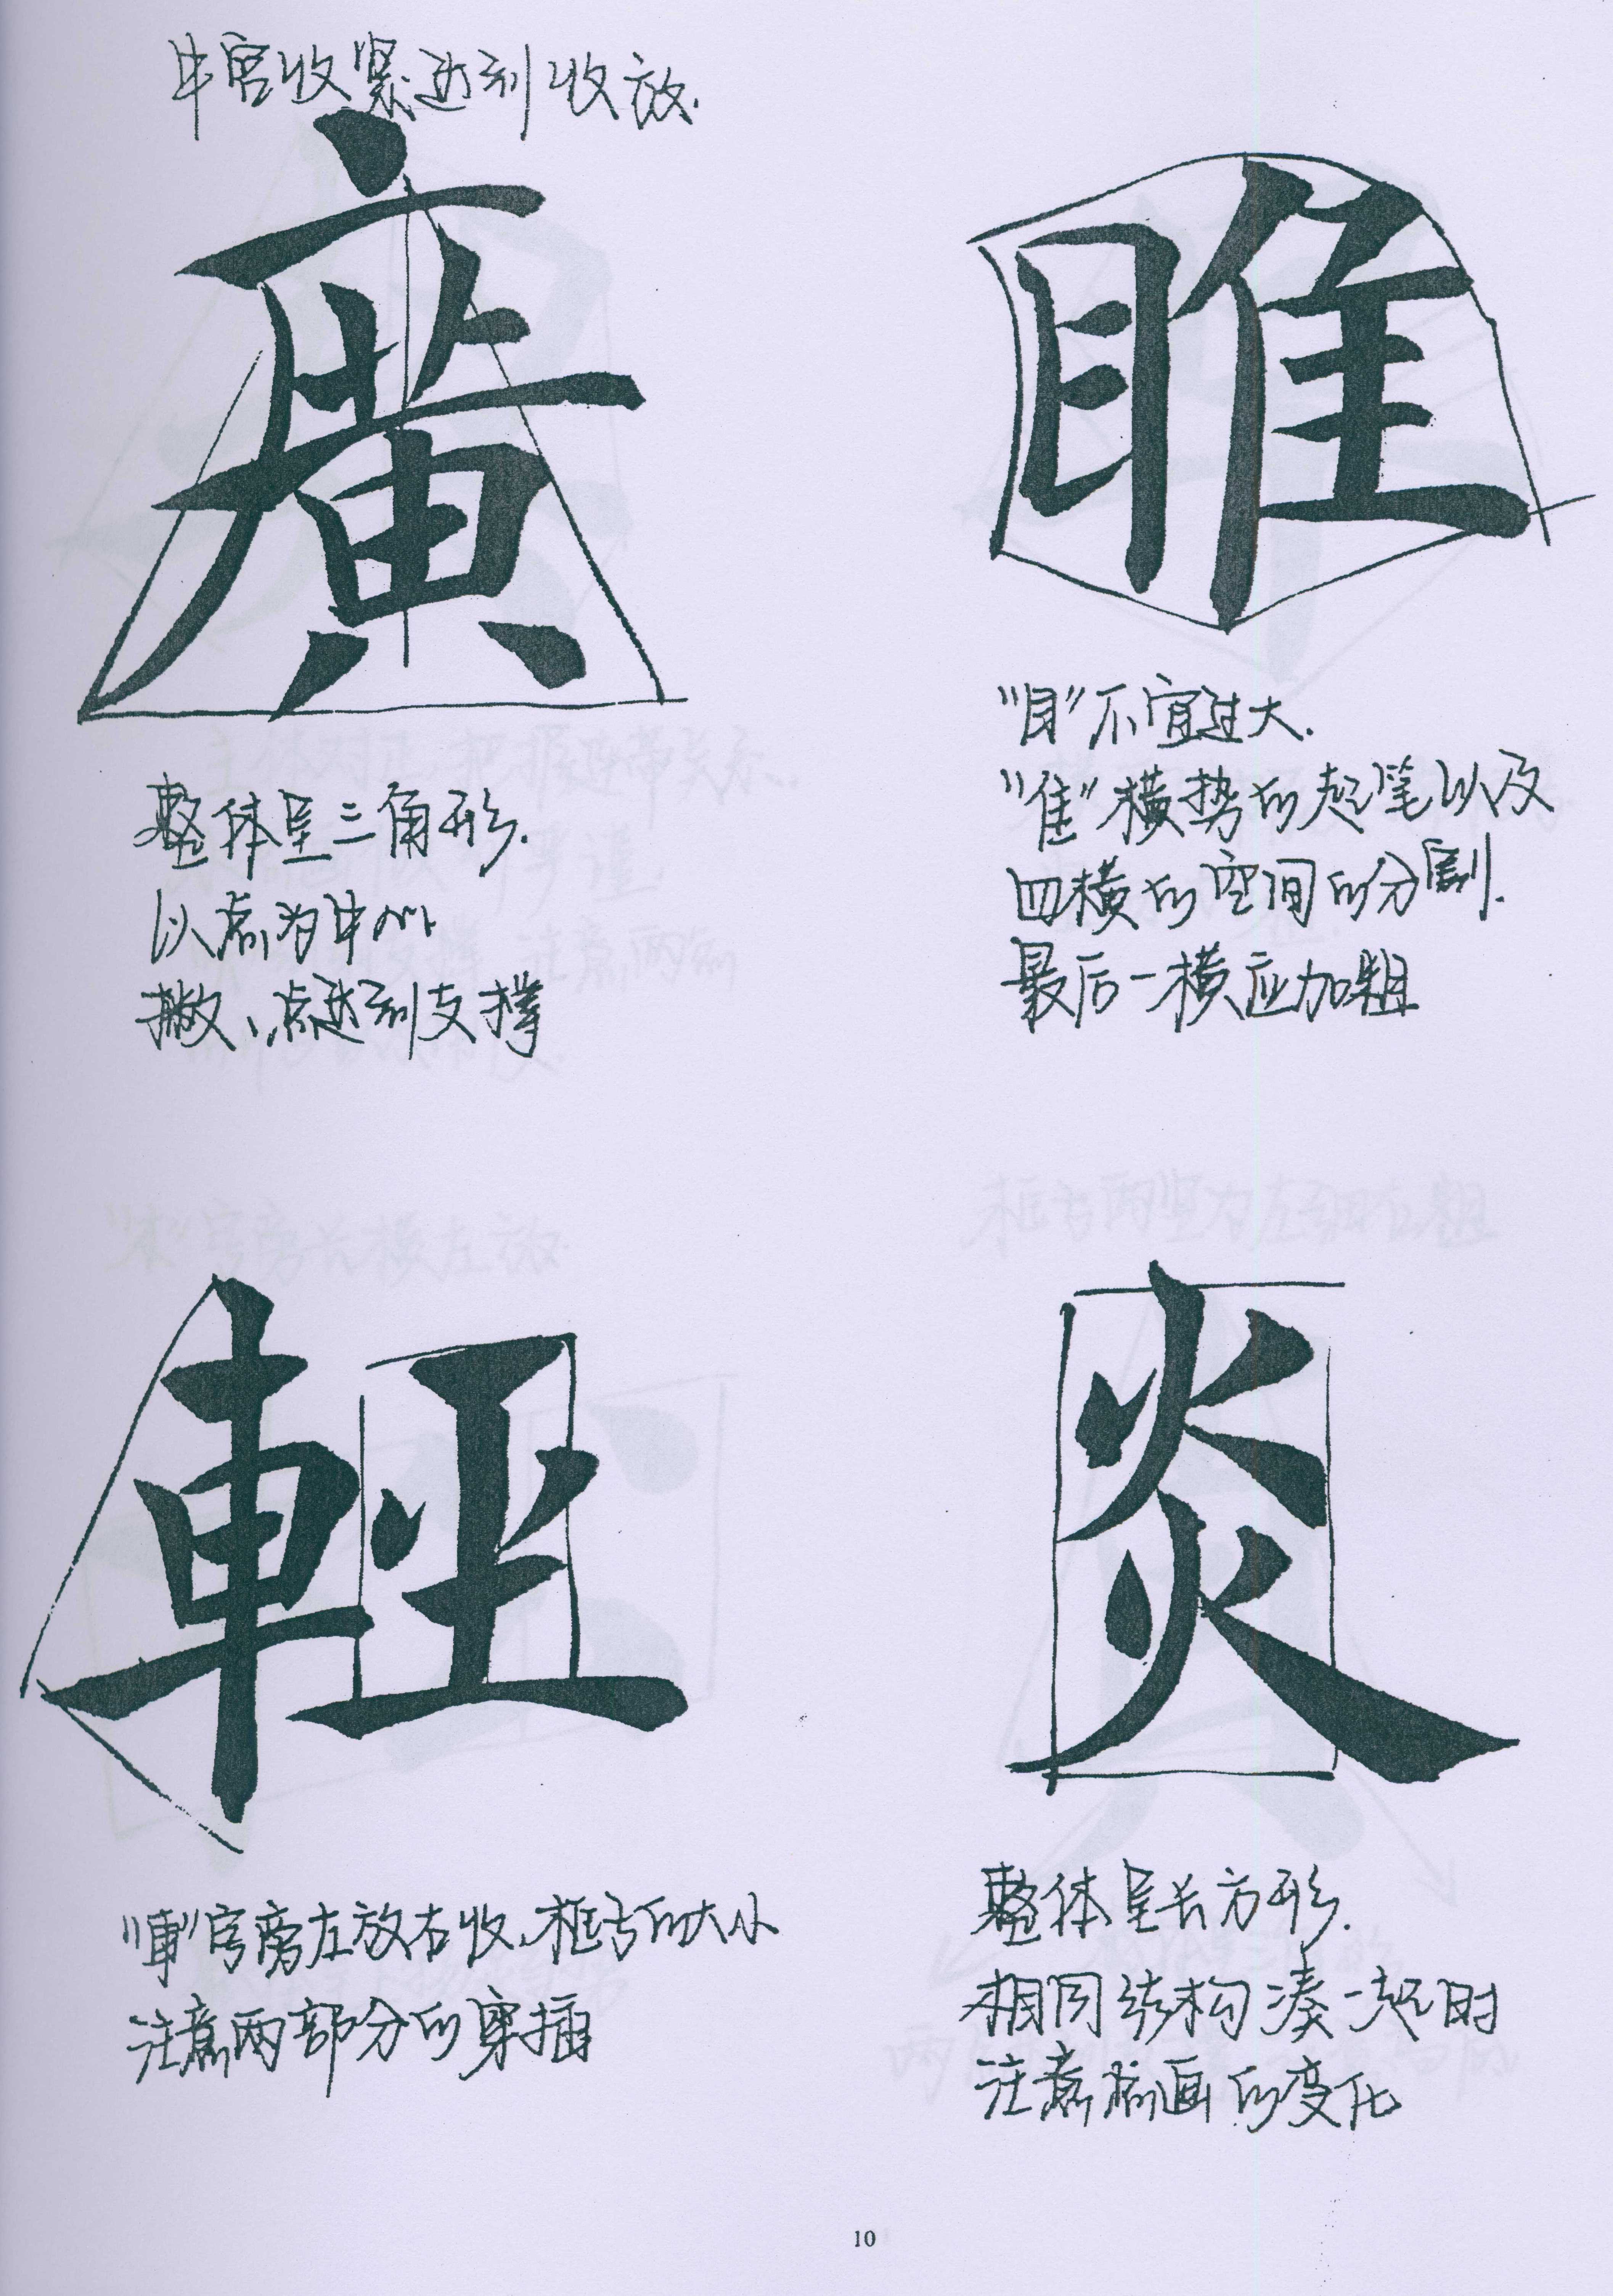 中宫收紧达到收放.
廣
整体呈三角形.
以点为中心
撇、点达到支撑
睢
"目"不宜过大.
"隹"横势的起笔以及
四横的空间的分割.
最后一横应加粗
輕
"車"字旁左放右收、框子的大小
注意两部分的穿插
炎
整体呈长方形.
相同结构凑一起时
注意点画的变化
10